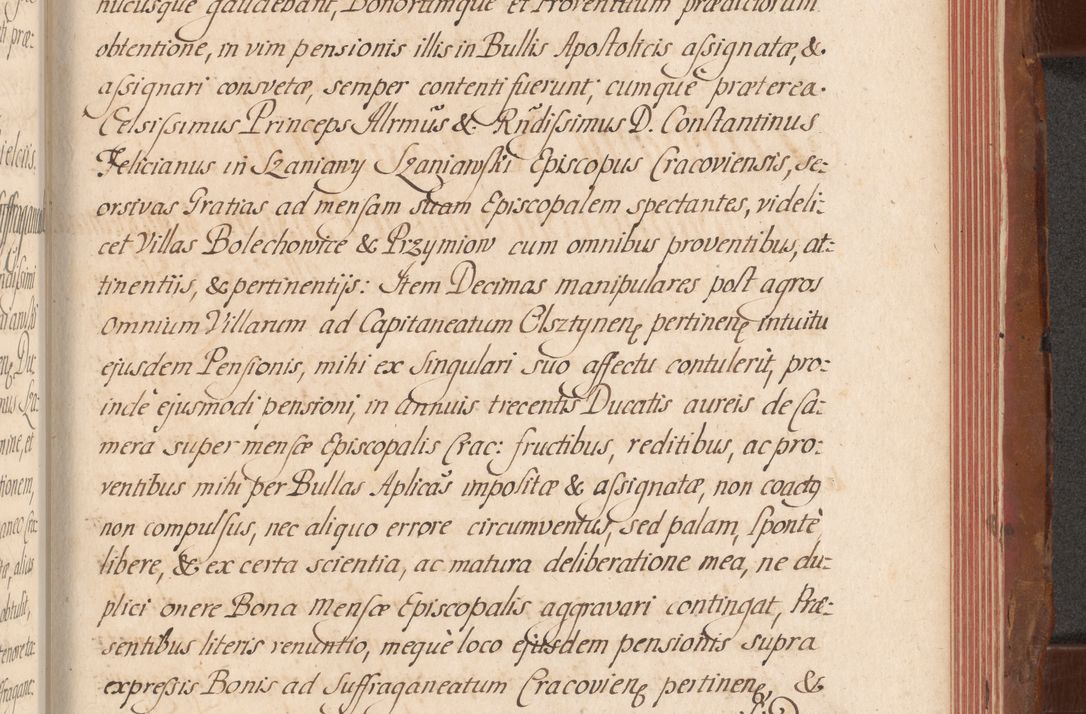 hucusque gaudebant, Bonorumque et Proventuum prædictorum
obtentione, in vim pensionis illis in Bullis Apostolicis assignatæ, &
assignari consvetæ, semper contenti fuerunt; cumque præterea.
Celsissimus Princeps Illrmũs & Rñdissimus D. Constantinus
Felicianus in Szaniawy Szaniawski Episcopus Cracoviensis, se:
orsivas Gratias ad mensam suam Episcopalem spectantes, videli:
cet Villas Bolechowice & Przymiow cum omnibus proventibus, at:
tinentijs, & pertinentijs: Item Decimas manipulares post agros
omnium Villarum ad Capitaneatum Olsztynenę pertinenę intuitu
ejusdem Pensionis, mihi ex Singulari suo affectu contulerit, pro:
indè ejusmodi pensioni, in annuis trecentis Ducatis aureis de Ca:
mera super mensæ Episcopalis Crac: fructibus, reditibus, ac pro:
ventibus mihi per Bullas Aplicãs impositæ & assignatæ, non coactq
non compulsus, nec aliquo errore circumventus, sed palam, spontè
libere, & ex certa scientia, ac matura deliberatione mea, ne du:
plici onere Bona Mensæ Episcopalis aggravari contingat, Præ:
sentibus literis renuntio, mequè loco ejusdem pensionis supra
expressis Bonis ad Suffraganeatum Cracovienę pertinenę, &